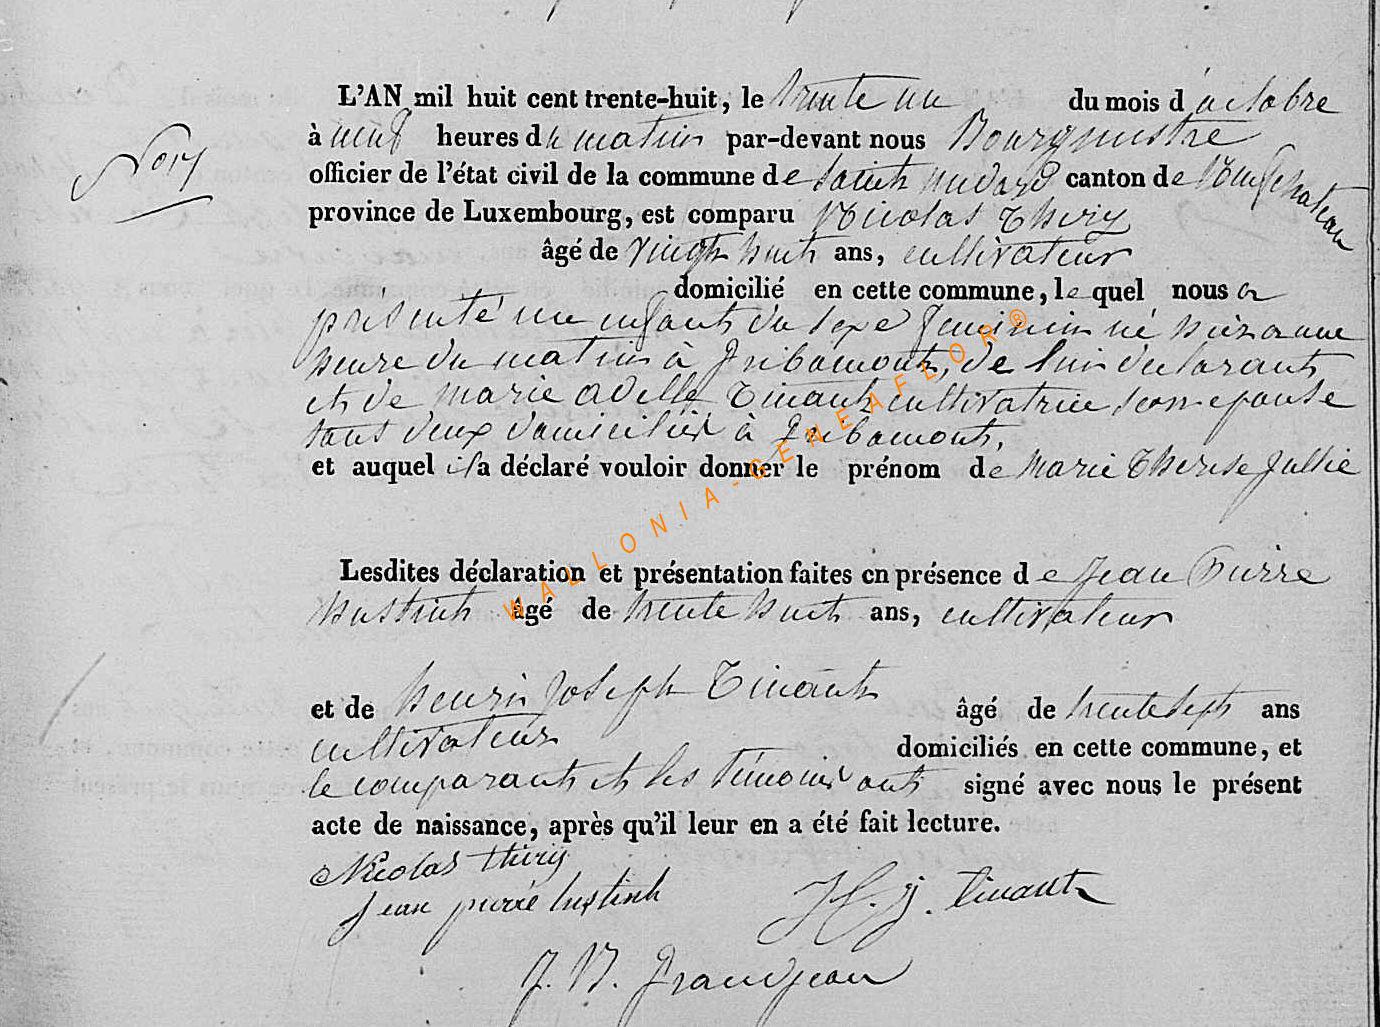 L'AN mil huit cent trente-huit, le trente un du mois d'octobre
à neuf heures du matin par-devant nous Bourgmestre
officier de l'état civil de la commune de Saint medard canton de Neufchateau
province de Luxembourg, est comparu Nicolas Thiry
âgé de vingt huit ans, cultivateur
domicilié en cette commune, lequel nous a
présenté un enfant du sexe feminin né hier a une
heure du matin à Gribomont, de lui declarant
et de marie adelle Tinant cultivatrice, son epouse
tous deux domiciliés à Gribomont,
et auquel il a déclaré vouloir donner le prénom de Marie Therese Jullie
Lesdites déclaration et présentation faites en présence de Jean Pierre
âgé de trente huit ans, cultivateur
et de henri Joseph Tinant âgé de trente sept ans
cultivateur domiciliés en cette commune, et
le comparant et les témoins ont signé avec nous le présent
acte de naissance, après qu'il leur en a été fait lecture.
Nicolas thiry
Jean pierre
H. j. tinant
J. N. Grandjean
WALLONIA-GENEAFLOR®